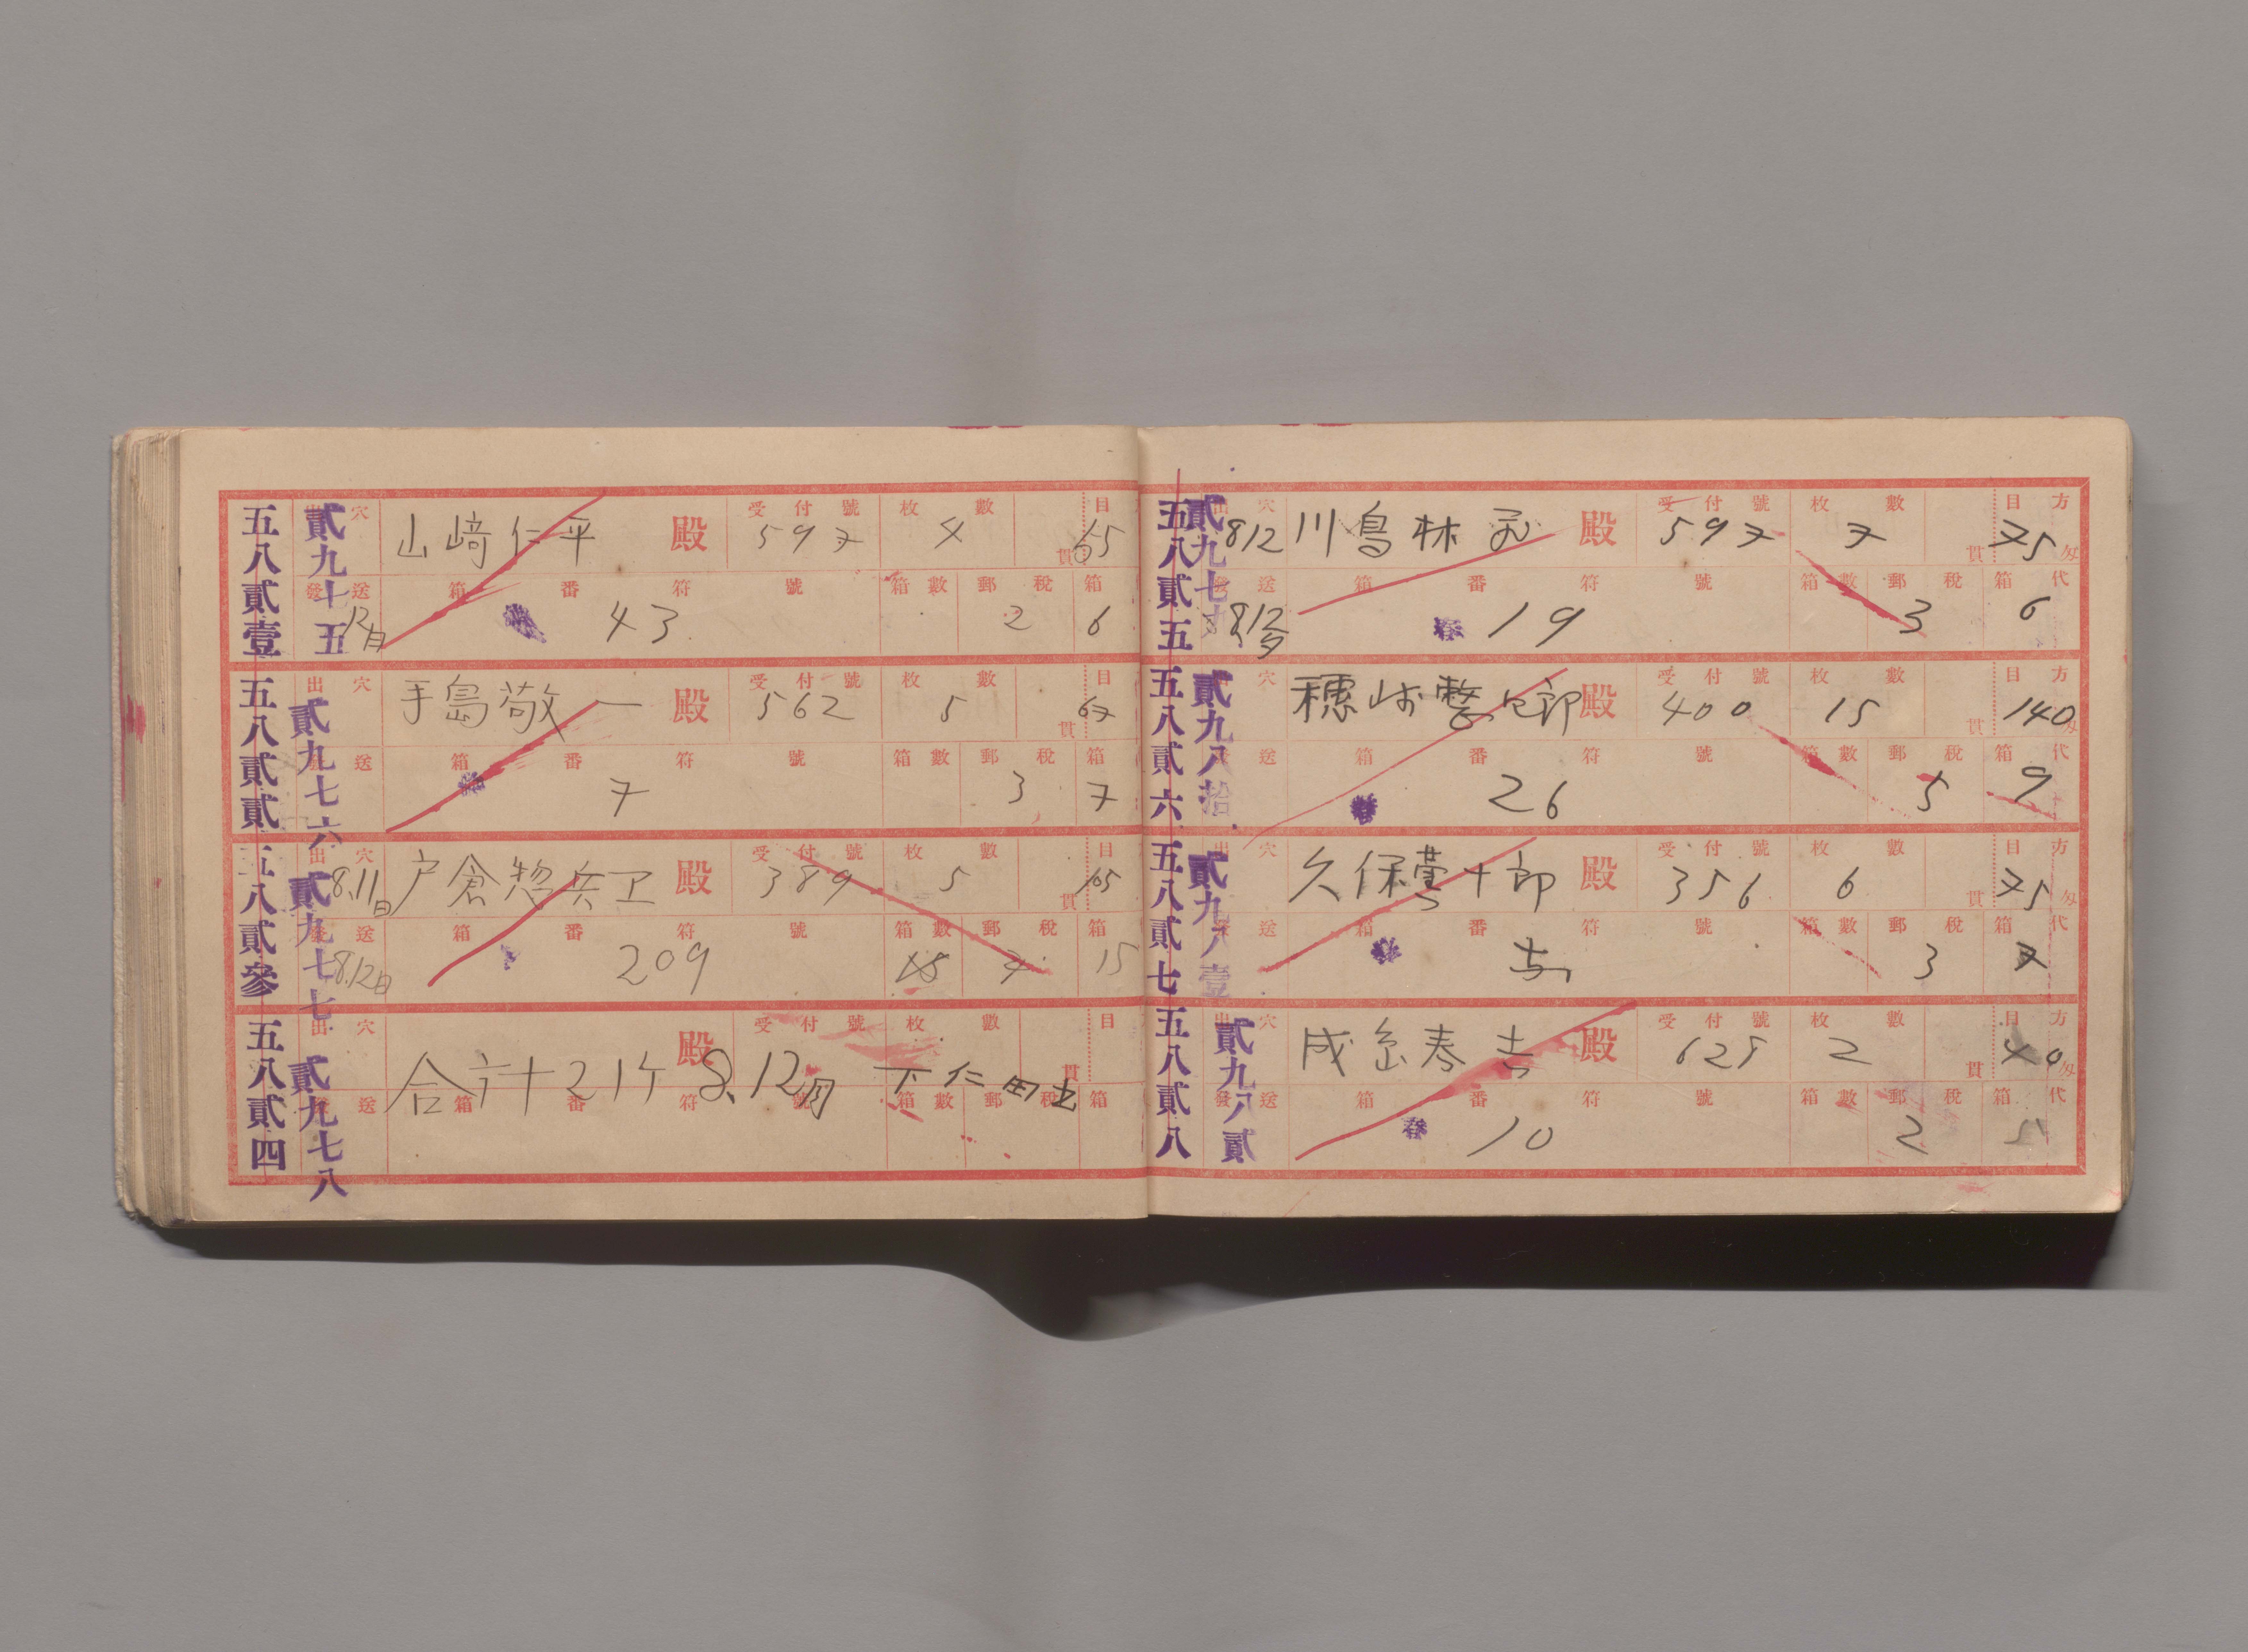 五八貳壹
貳九七五
出穴 山﨑仁平 殿 受付號 597 枚數 4 貫 目 65
發送 12日 箱番符號 春 43 箱數 郵税 2 箱 6
五八貳貳
貳九七六
出穴 手島敬一 殿 受付號 562 枚數 5 貫 目 67
發送 箱番符號 春 7 箱數 郵税 3 箱 7
五八貳參
貳九七七
出穴 8.11日 戸倉惣兵卫 殿 受付號 389 枚數 5 貫 目 105
發送 8.12日 箱番符號 209 箱數 郵税 4 箱 15
五八貳四
貳九七八
出穴 殿 受付號 枚數 貫 目
合計21ケ 8.12日 下仁田
發送 箱番符號 箱數 郵税 箱
五八貳五
貳九七九
出穴 812 川島林 殿 受付號 597 枚數 7 貫 目方 75 匁
發送 812 箱番符號 春 19 箱數 郵税 3 箱代 6
五八貳六
貳九八拾
出穴 穗 郎 殿 受付號 400 枚數 15 貫 目方 140 匁
發送 箱番符號 春 26 箱數 郵税 5 箱代 9
五八貳七
貳九八壹
出穴 久保 十郎 殿 受付號 356 枚數 6 貫 目方 75 匁
送 箱番符號 春 箱數 郵税 3 箱代 7
五八貳八
貳九八貳
出穴 春吉 殿 受付號 625 枚數 2 貫 目方 40 匁
發送 箱番符號 春 10 箱數 郵税 2 箱代 5